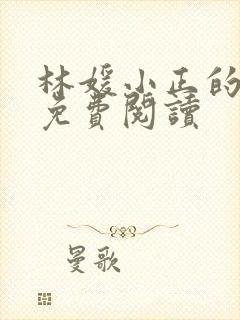 林媛小正的
免費閱讀
曼歌